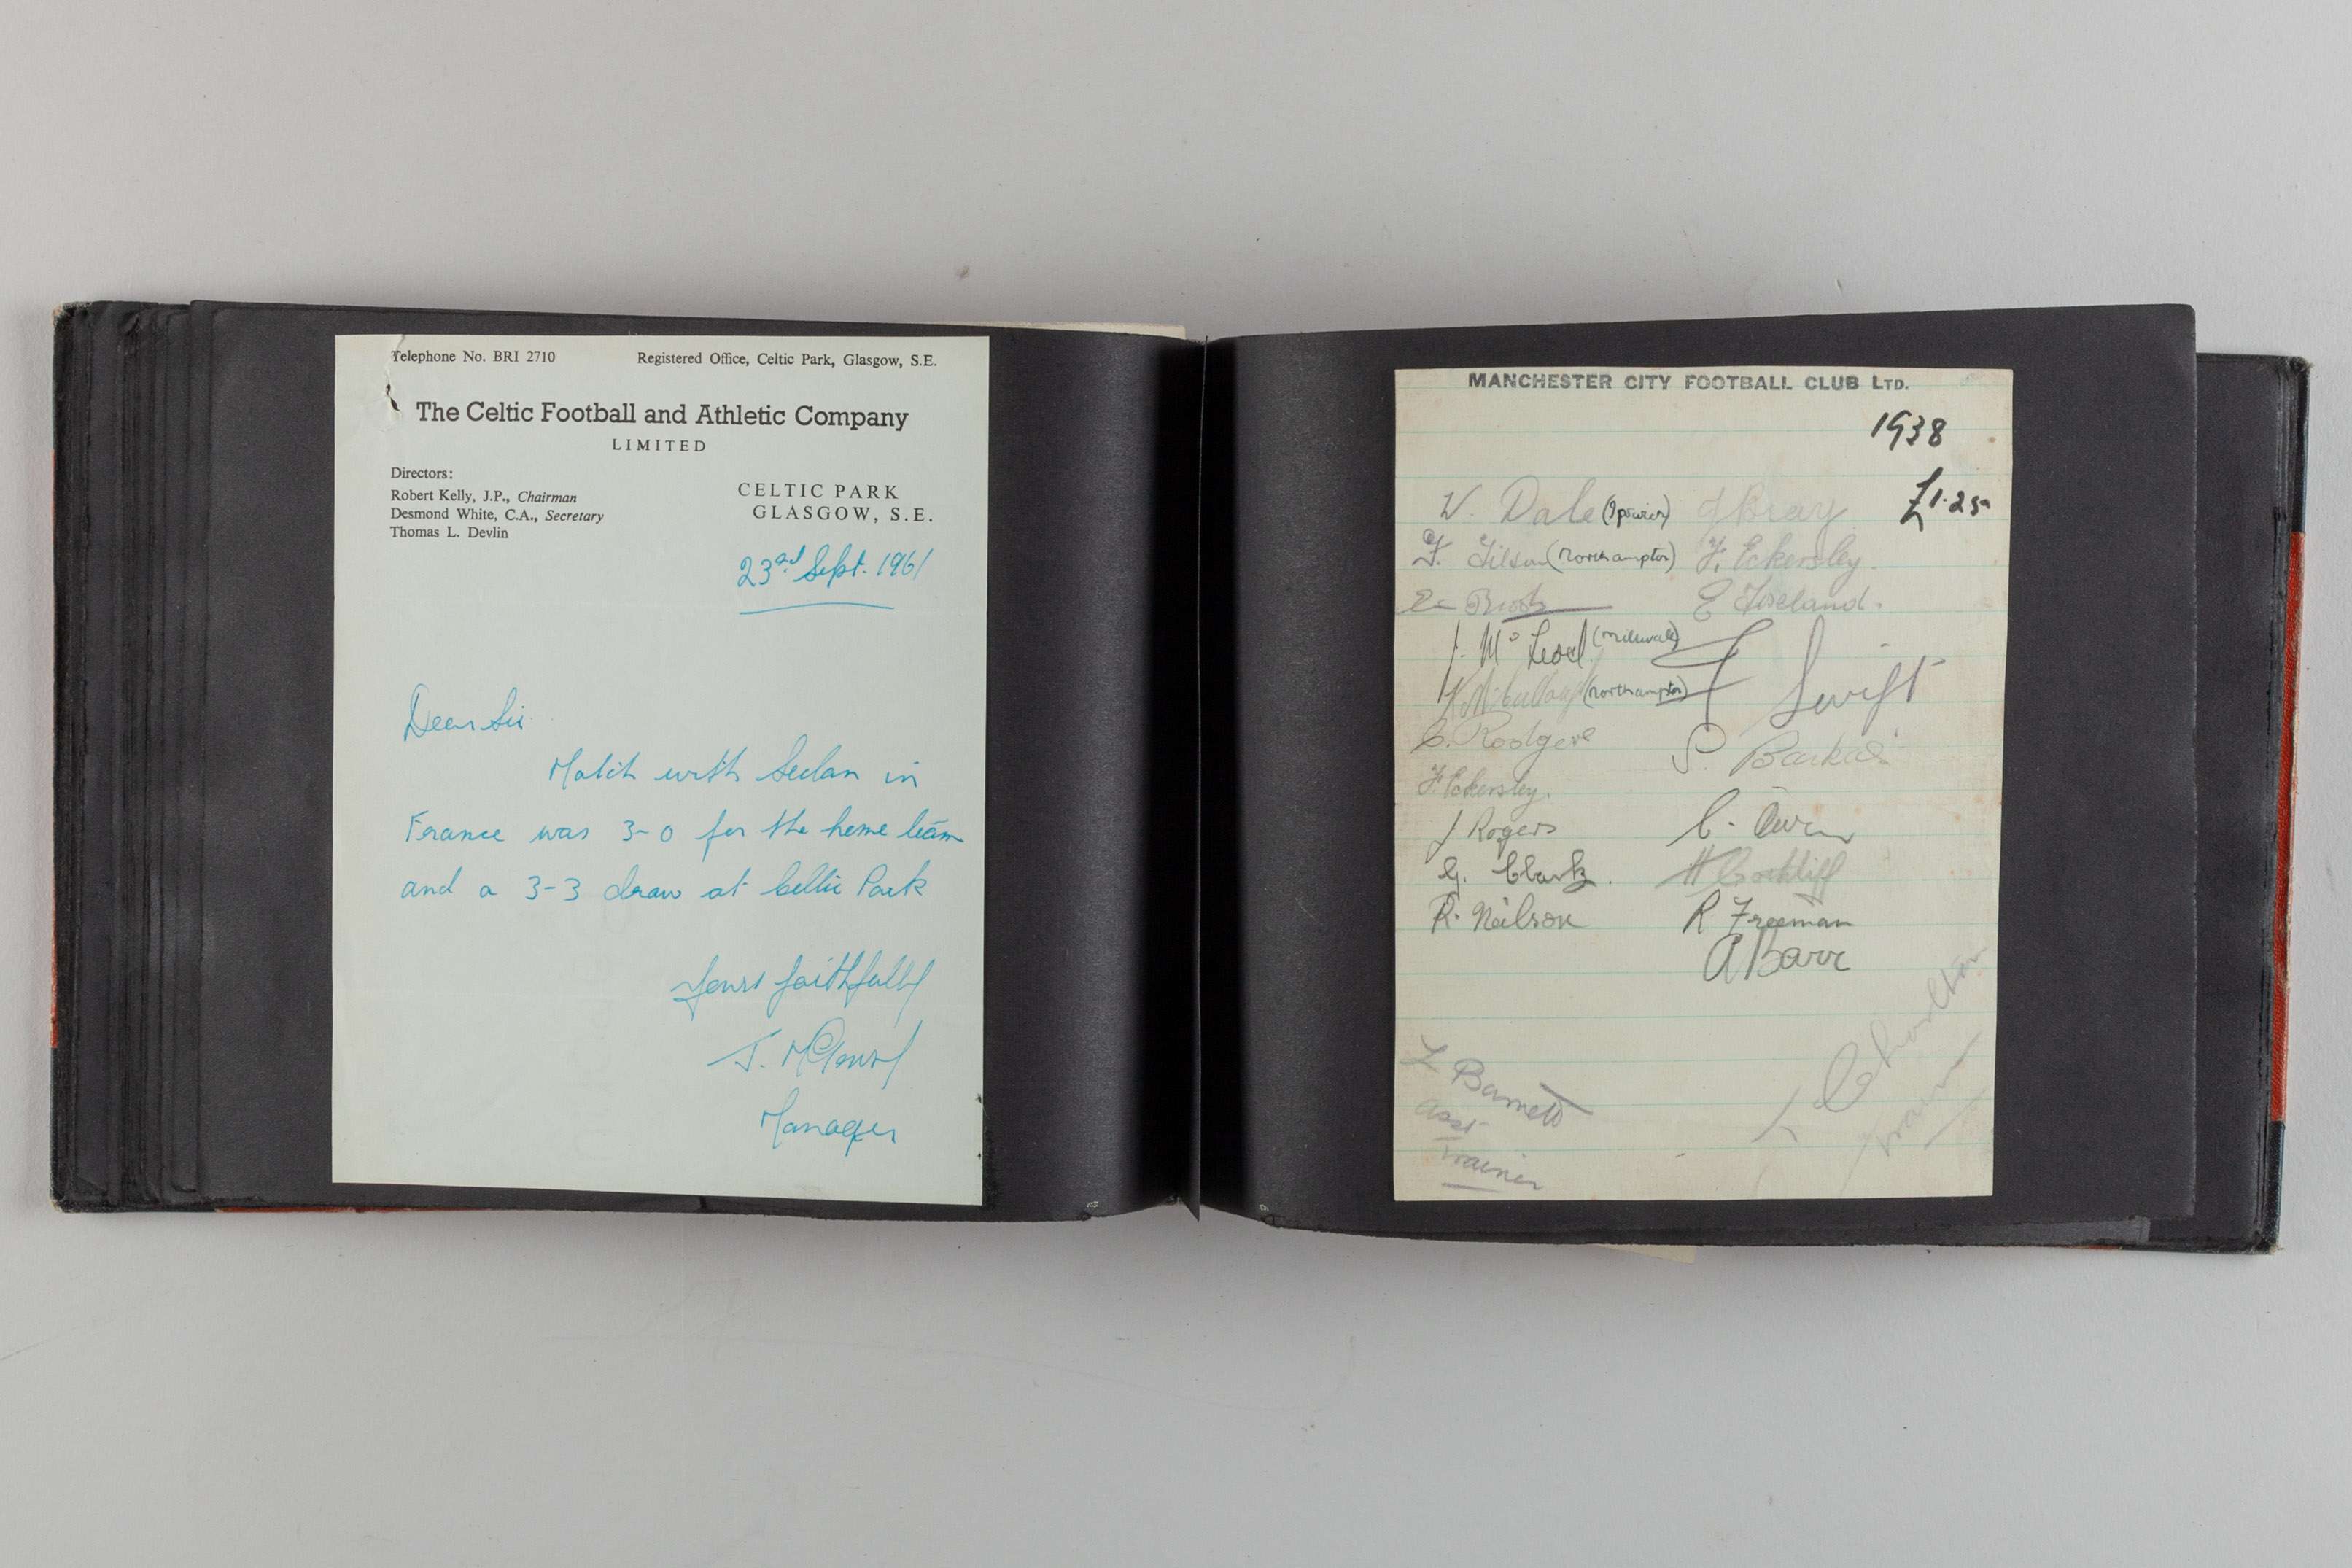 Telephone No. BRI 2710 Registered Office, Celtic Park, Glasgow, S.E.
The Celtic Football and Athletic Company
LIMITED
Directors:
Robert Kelly, J.P., Chairman
Desmond White, C.A., Secretary
Thomas L. Devlin
CELTIC PARK
GLASGOW, S.E.
23rd Sept. 1961
Dear Sir
Match with Sedan in
France was 3-0 for the home team
and a 3-3 draw at Celtic Park
Yours faithfully
J. McGrory
Manager
MANCHESTER CITY FOOTBALL CLUB LTD.
1938
£1.25
W. Dale (Ipswich) J Bray
F. Tilson (Northampton) F. Eckersley.
E Brook
J. McLeod (Millwall)
K. McCullough (Northampton) F Swift
C. Rodger S. Barkas
F. Eckersley.
J Rogers C. Owen
G. Clark.
R. Neilson R Freeman
A Barr
L Barnett
asst
Trainer
L Charlton